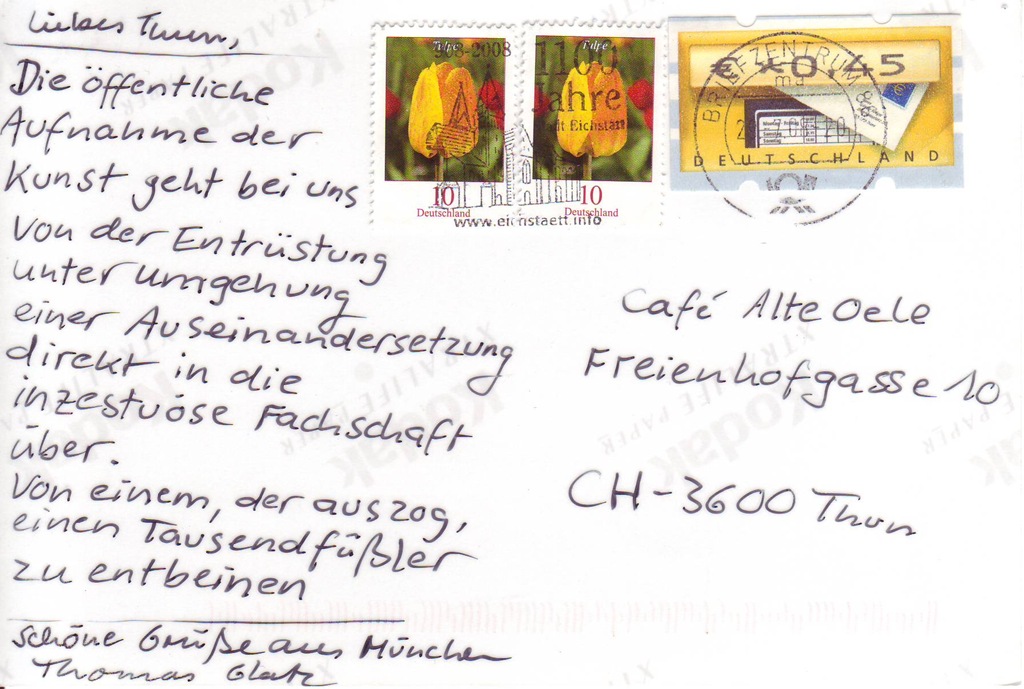 Liebes Thun,
Die öffentliche
Aufnahme der
Kunst geht bei uns
von der Entrüstung
unter umgehung
einer Auseinandersetzung
direkt in die
inzestuöse Fachschaft
über.
Von einem, der auszog,
einen Tausendfüßler
zu entbeinen
Schöne Grüße aus München
Thomas Glatz
Tulpe
10
Deutschland
Tulpe
10
Deutschland
908-2008
1100
Jahre
Stadt Eichstätt
www.eichstaett.info
€ *0,45
DEUTSCHLAND
BRIEFZENTRUM
Café Alte Oele
Freienhofgasse 10
CH-3600 Thun
Kodak
XTRALIFE PAPER